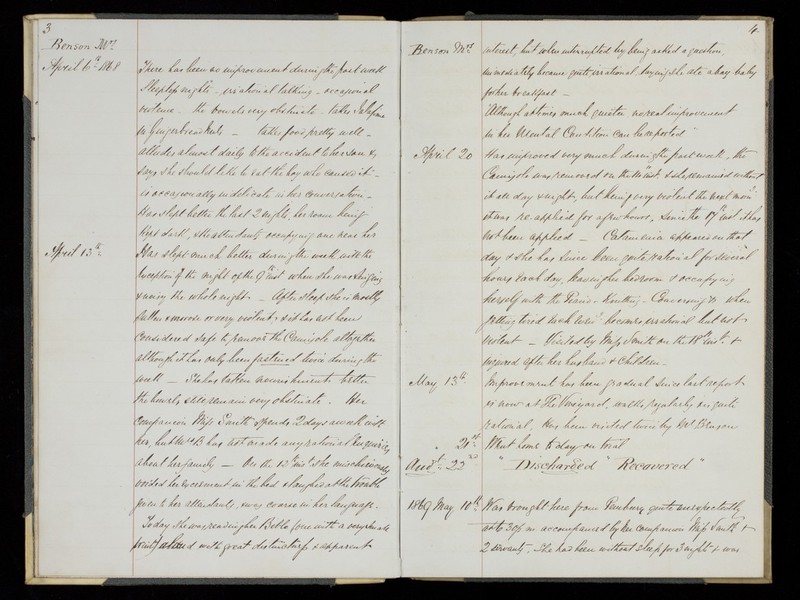 3
Benson Mrs
April 6th 1868
There has been no improvement during the past week
Sleepless nights - irrational talking - occasional
violence - the bowels very obstinate - takes Jalapine
in Gingerbread Nuts - takes food pretty well -
alludes almost daily to the accident to her son &
says she should like to eat the boy who caused it -
is occasionally indelicate in her conversation -
Has slept better the last 2 nights, her room being
kept dark, & the attendant occupying one near her
April 13th
Has slept much better during the week with the
exception of the night of the 9th inst when she was singing
& the whole night - After sleep she is mostly
sullen & morose or very violent & it has not been
considered safe to remove the Camisole altogether
although it has only been fastened twice during the
week - She has taken nourishment better
the bowels still remain very obstinate. Her
companion Miss Smith spends 2 days a week with
her, but Mrs B has not made any rational enquiries
about her family - On the 12th inst she mischievously
voided her excrement in the bed & laughed at the trouble
given to her attendants, very coarse in her language.
Today she was reading her Bible (one with a very small
print) with great distinctness & apparent
4
Benson Mrs
interest, but when interrupted by being asked a question,
immediately became quite irrational, saying she ate a baby
for her breakfast -
Although at times much quieter no real improvement
in her Mental Condition can be reported"
April 20
Has improved very much during the past week, the
Camisole was removed on the inst & she remained without
it all day & night, but being very violent the next morng
it was re-applied for a few hours, Since the 17th inst it has
not been applied - Catamenia appeared on that
day & she has since been quite rational for several
hours each day, leaving her bedroom & occupying
herself with the Piano - Knitting - Conversing &c when
getting tired both times becomes irrational but not
violent - Visited by Miss Smith on the 18th inst. &
inquired after her husband & children.
May 13th
Improvement has been gradual since last report
is now at The Vineyard, walks regularly & is quite
rational. Has been visited twice by Mr Benson
" 21st
Went home to day on trial
Augt 22nd
"Discharged" "Recovered"
1869 May 10th
Was brought here from quite unexpectedly
at 6.30 pm accompanied by her companion Miss Smith &
2 servants. She had been without sleep for 3 nights & was